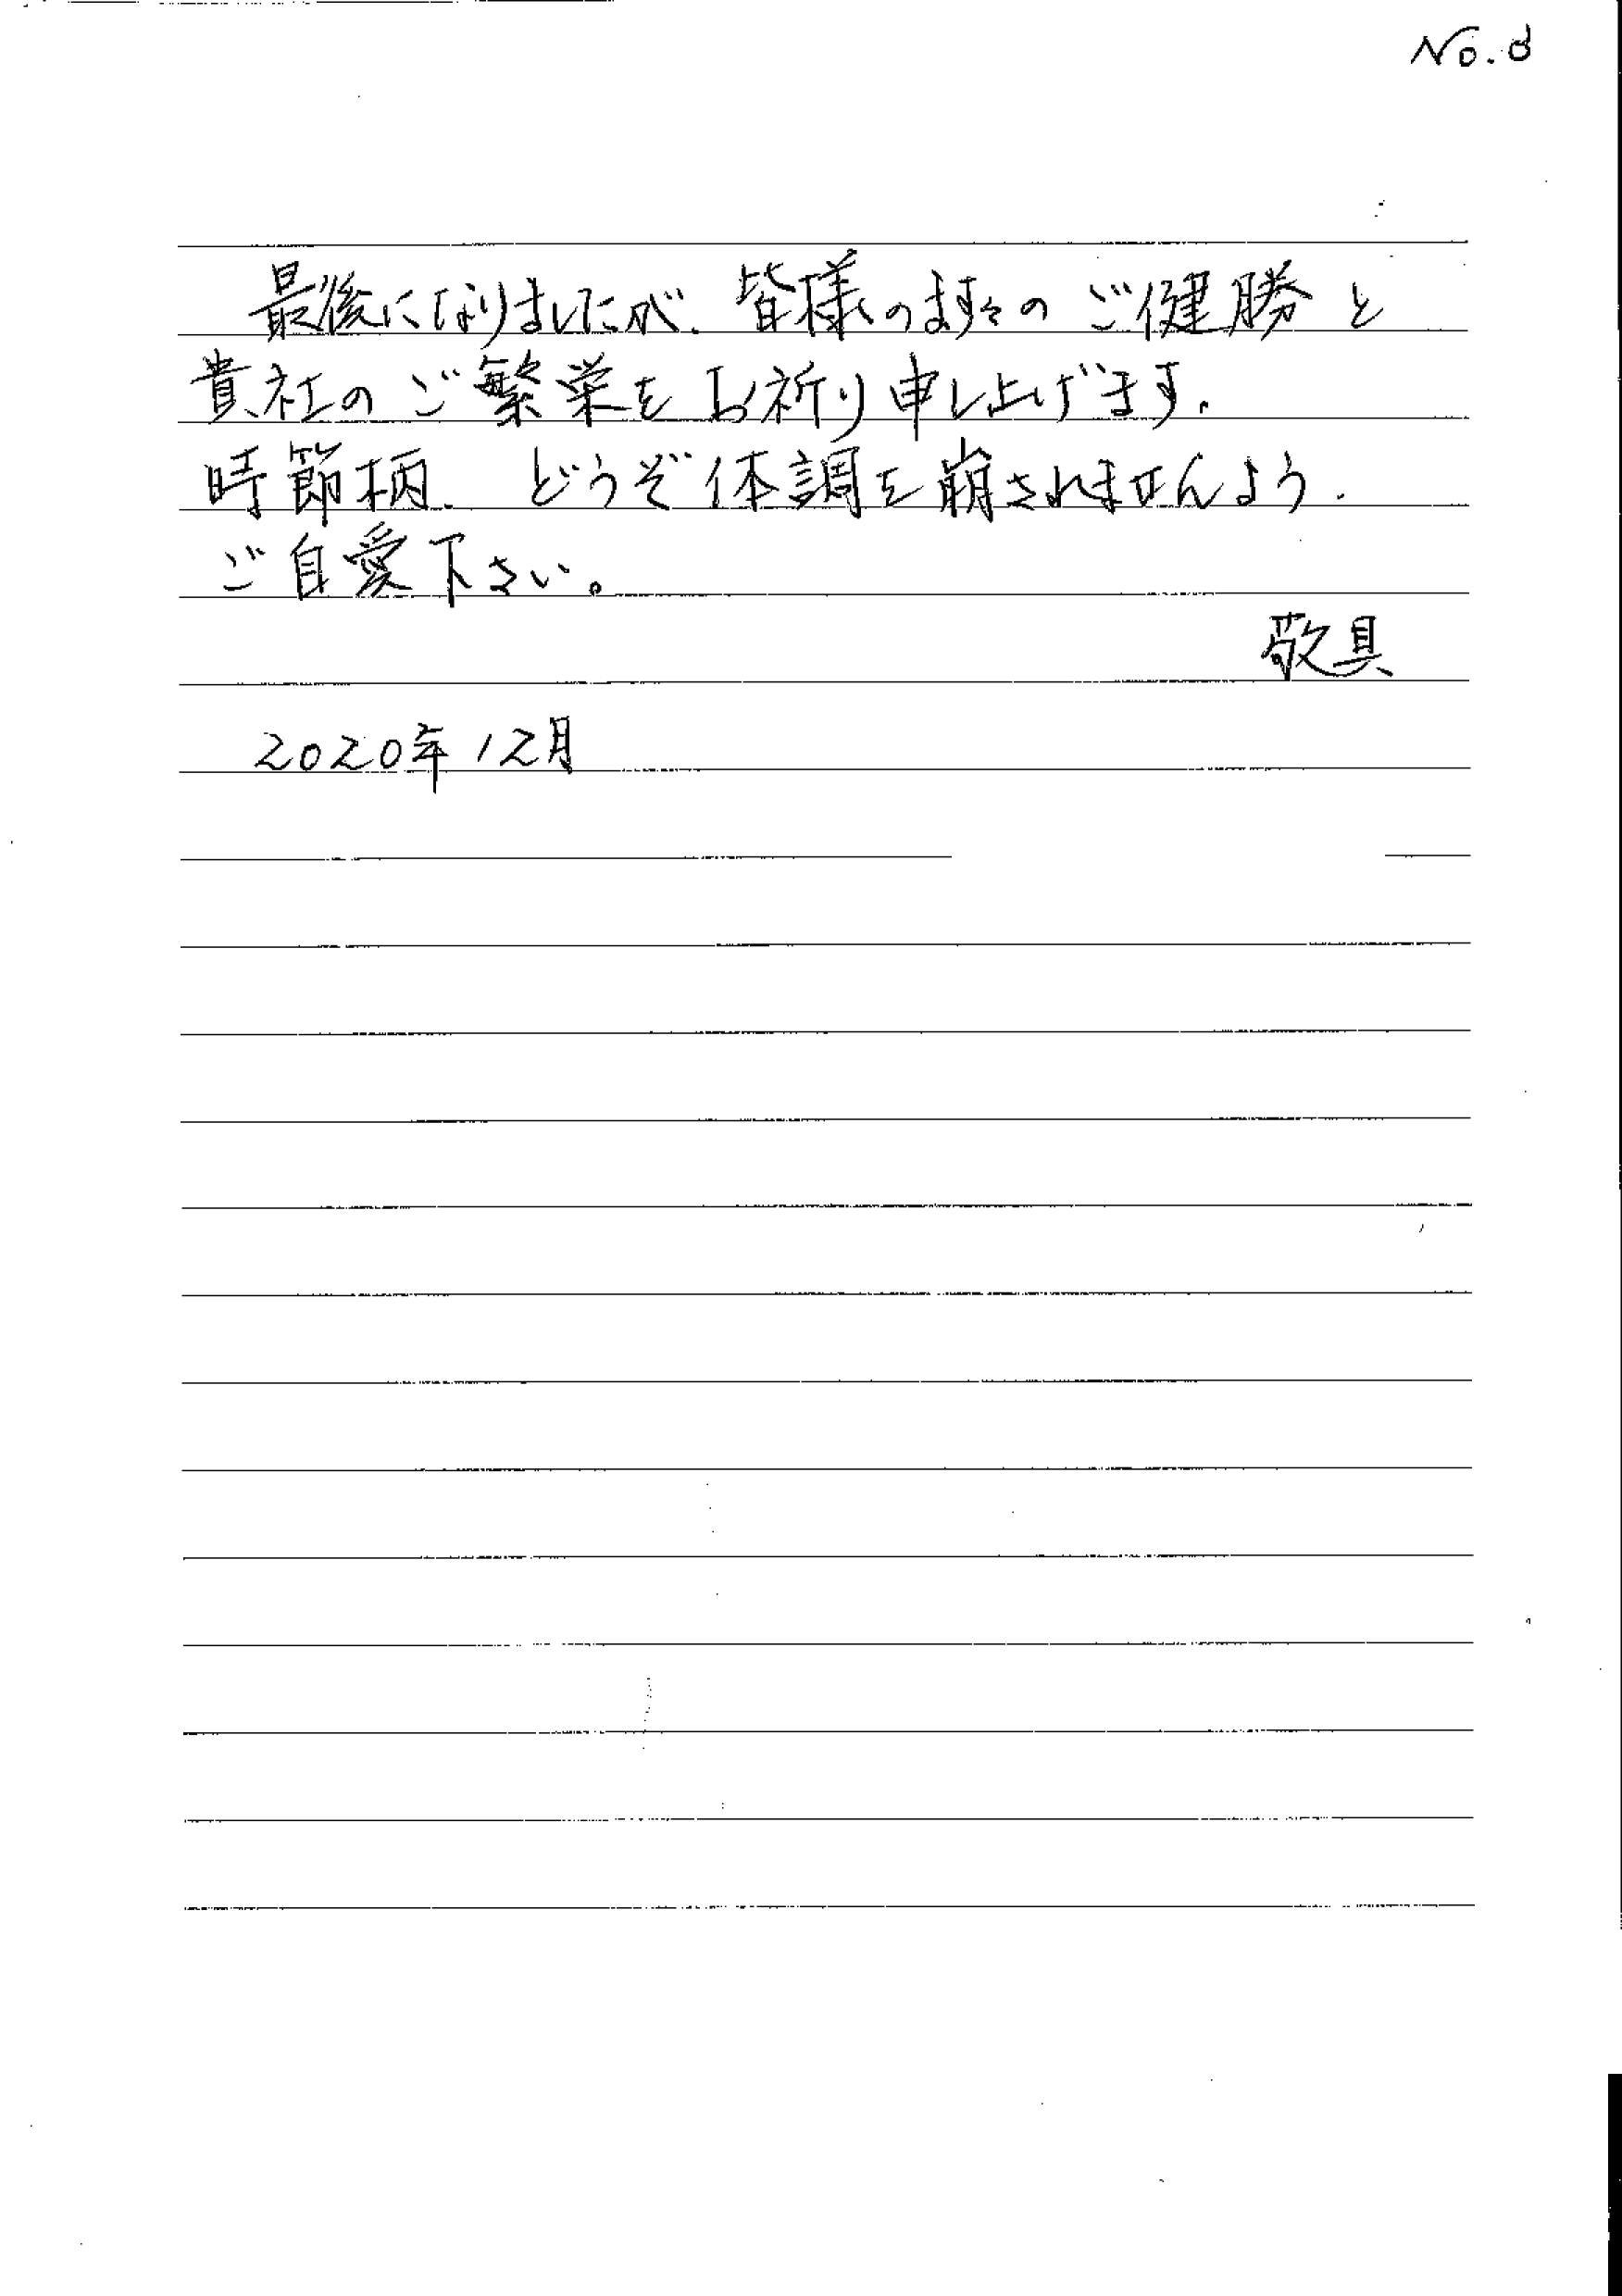 No.8
最後になりましたが、皆様のます々のご健勝と
貴社のご繁栄をお祈り申し上げます。
時節柄、どうぞ体調を崩されませんよう、
ご自愛下さい。
敬具
2020年12月